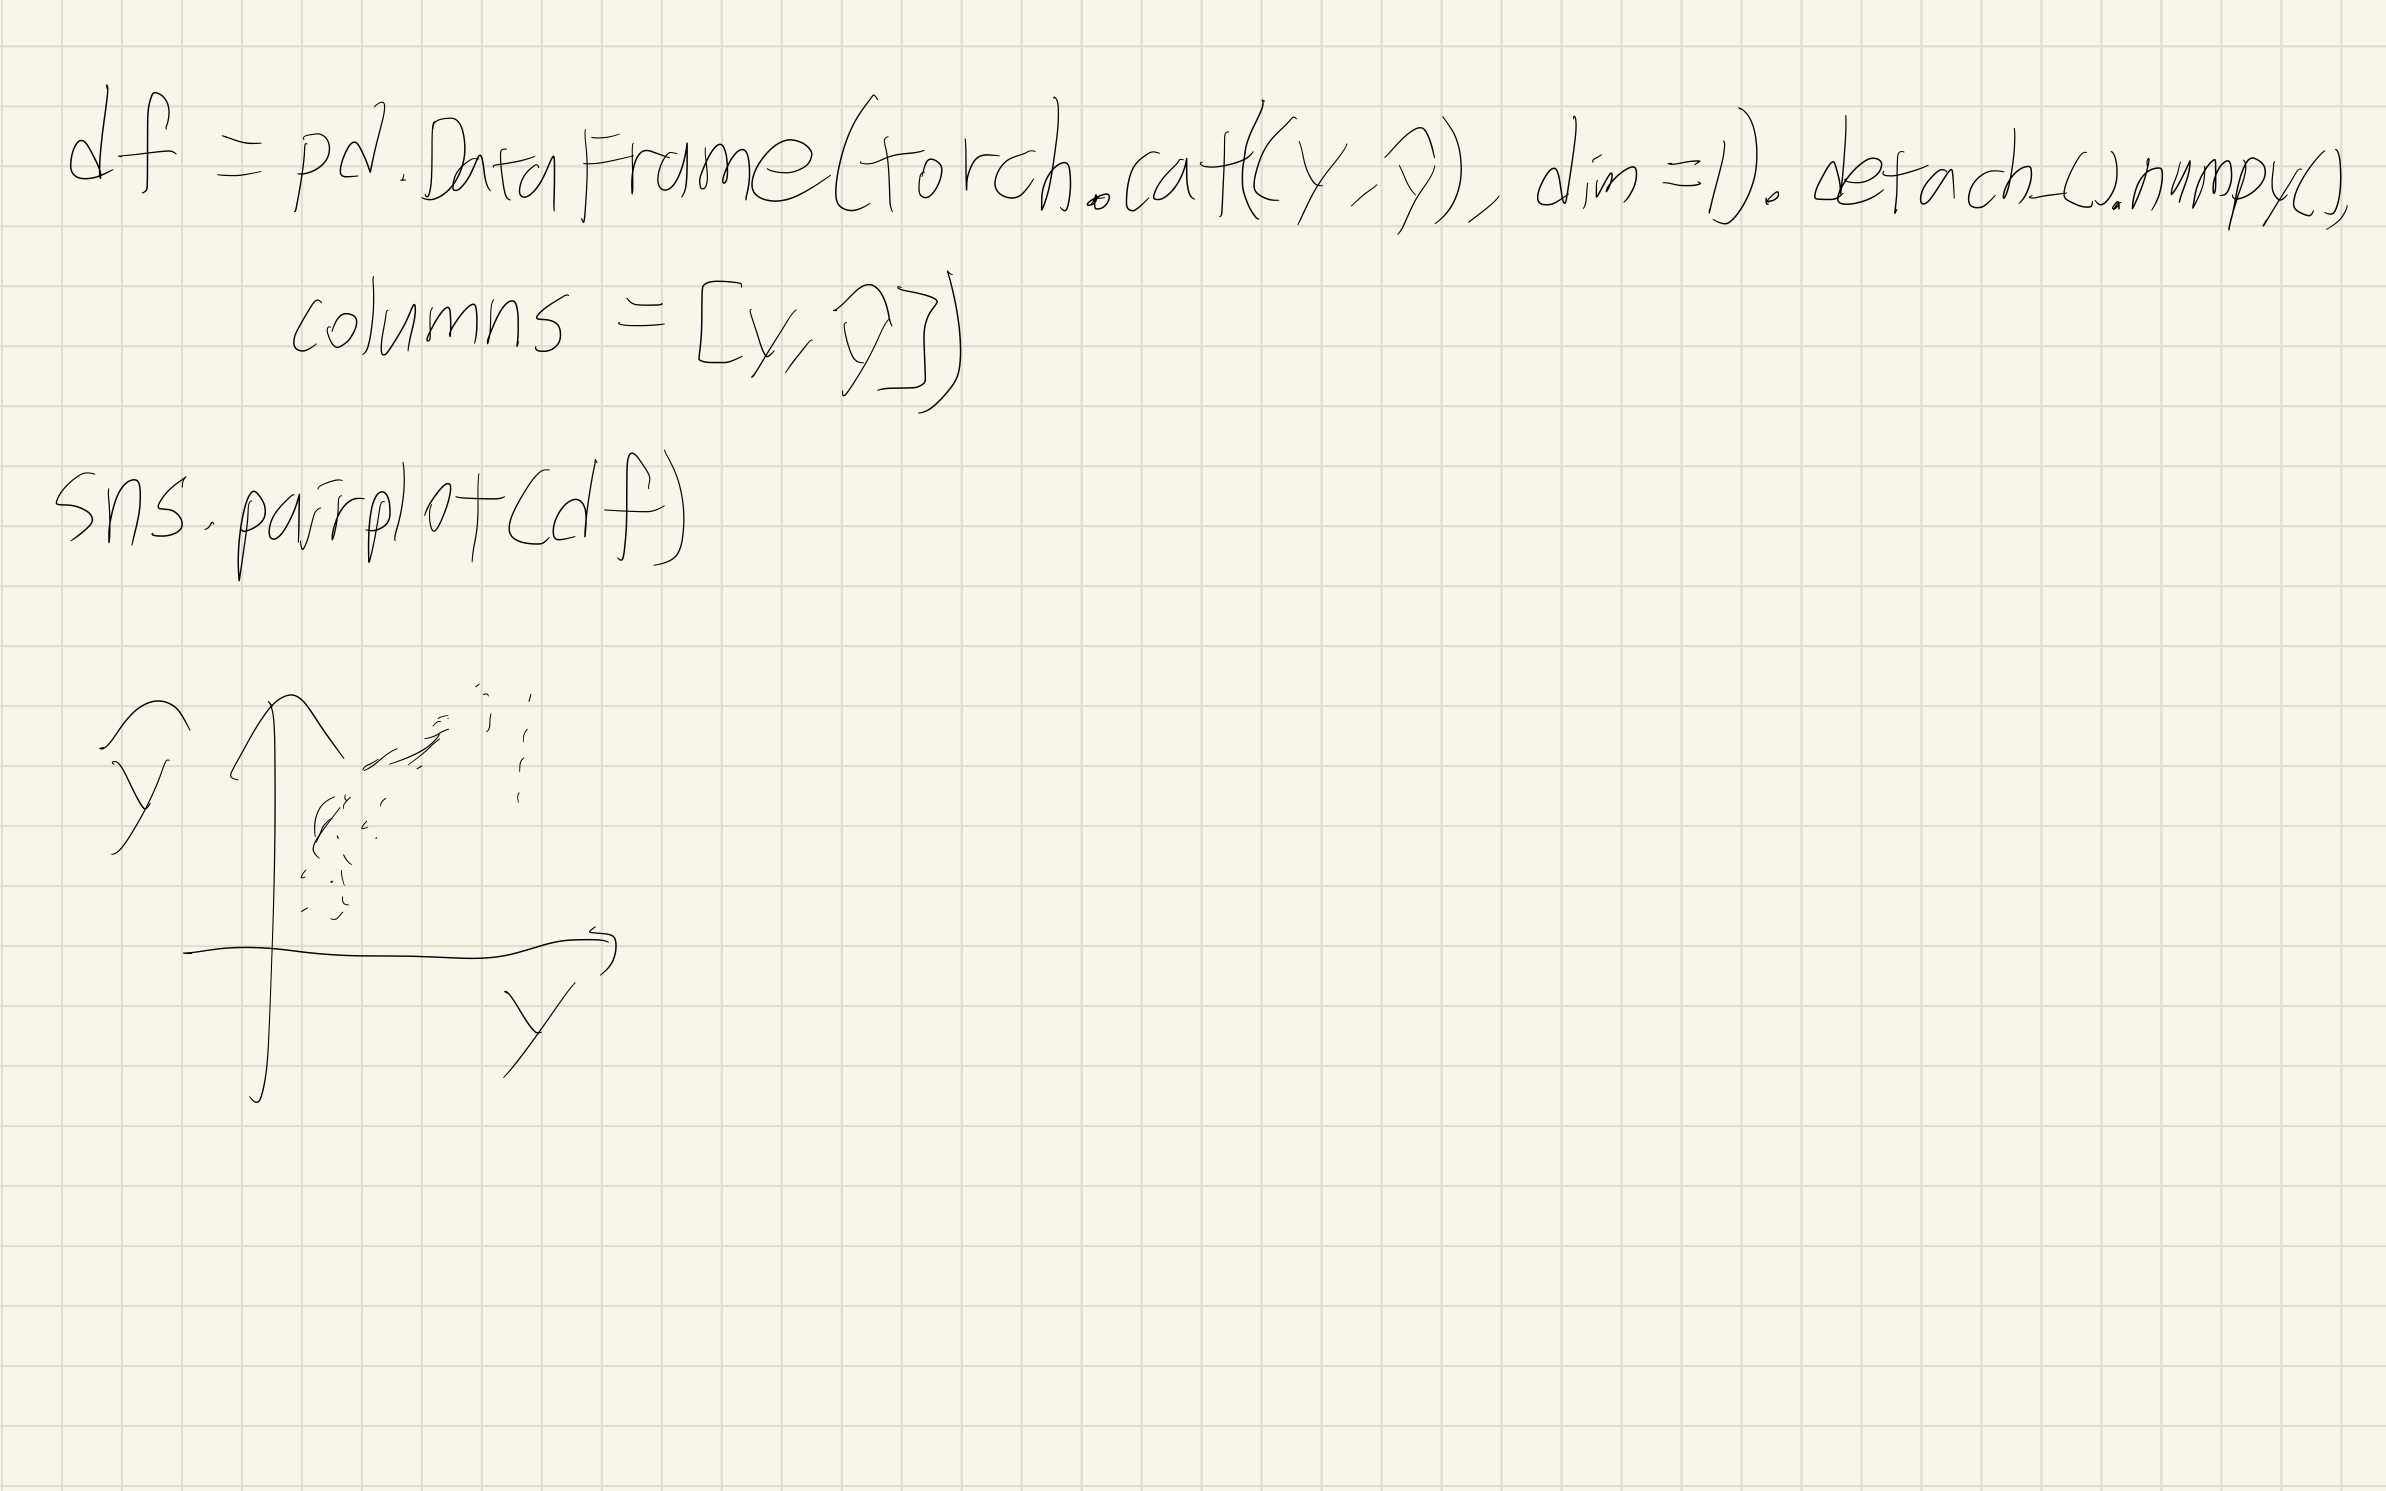 df = pd.DataFrame(torch.cat((y, ŷ), dim=1).detach_().numpy(),
columns = [y, ŷ])
sns.pairplot(df)
ŷ
y